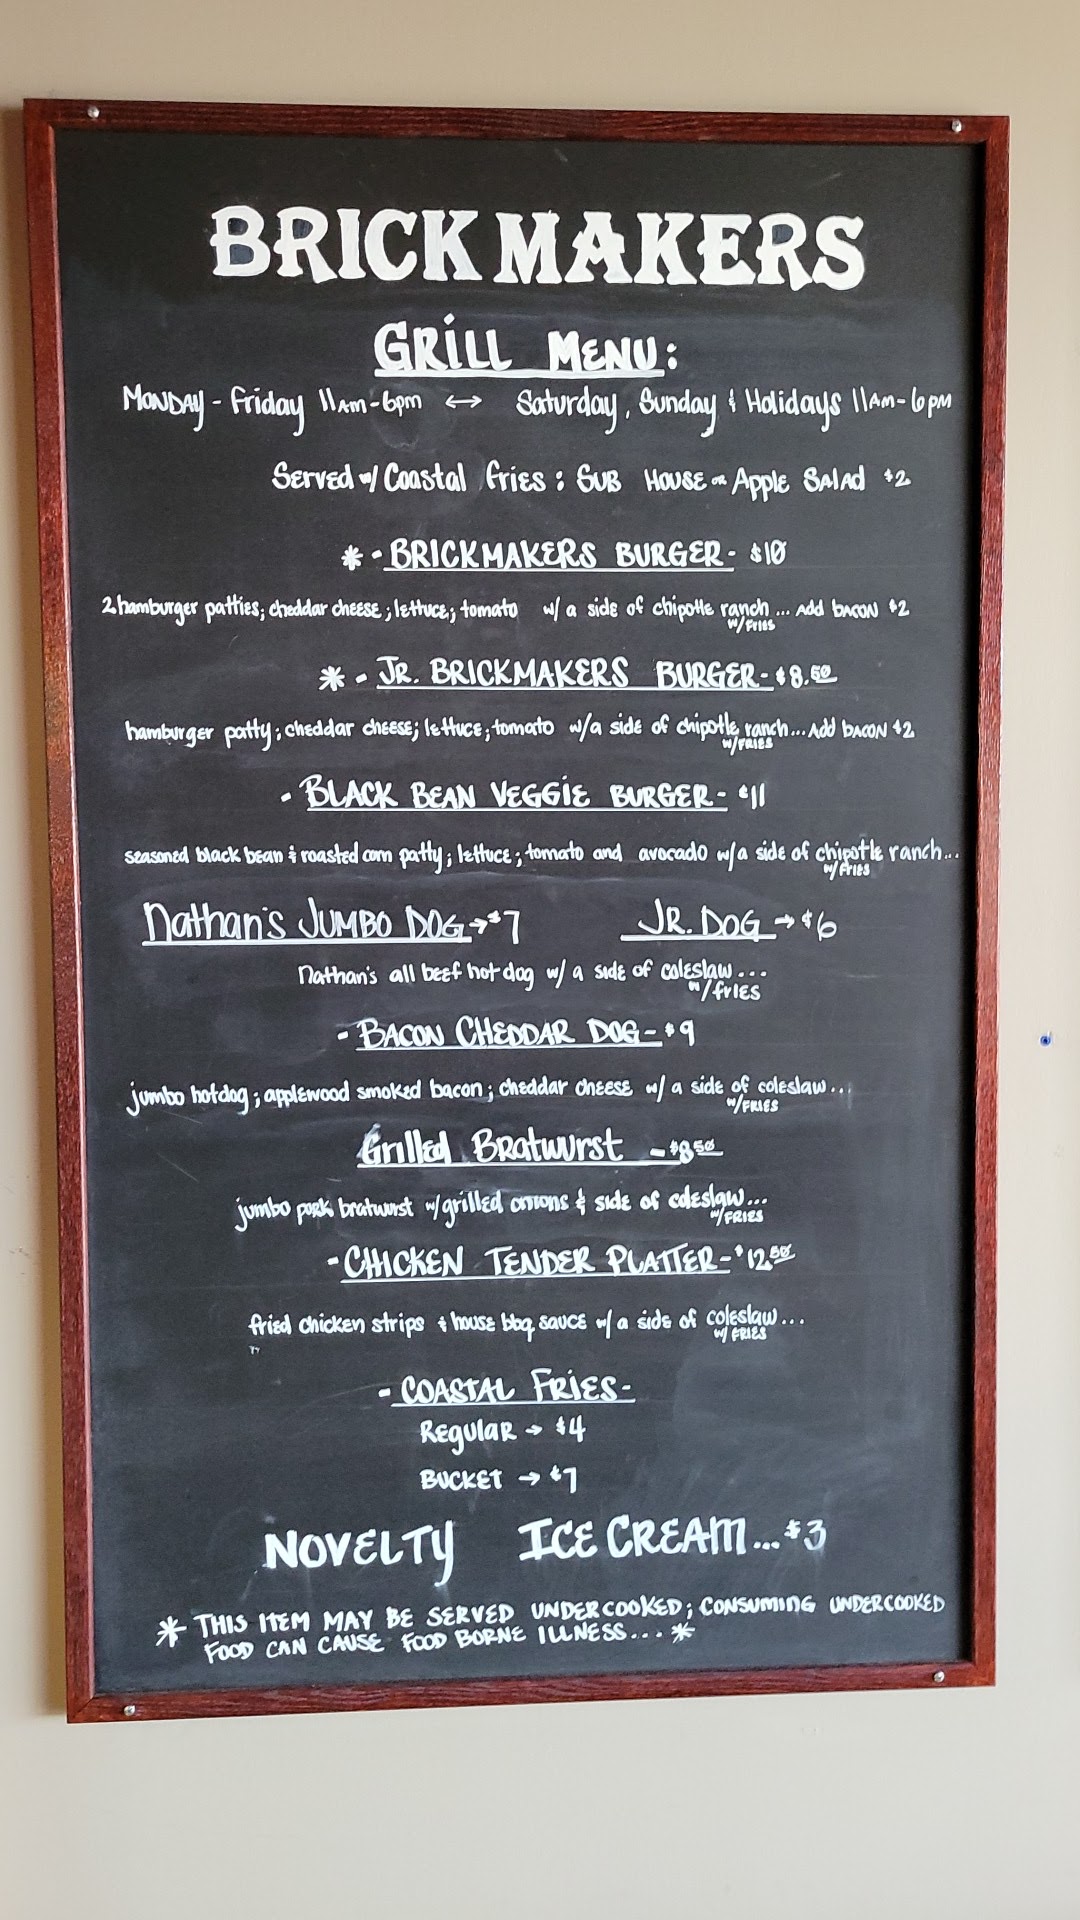 BRICKMAKERS
GRILL MENU:
MONDAY - Friday 11AM-6pm ↔ Saturday, Sunday & Holidays 11AM-6PM
Served w/ Coastal fries: SUB HOUSE or Apple SALAD $2
* - BRICKMAKERS BURGER - $10
2 hamburger patties; cheddar cheese; lettuce; tomato w/ a side of chipotle ranch... Add bacon $2
w/FRIES
* - JR. BRICKMAKERS BURGER - $8.50
hamburger patty; cheddar cheese; lettuce; tomato w/a side of chipotle ranch... Add bacon $2
w/FRIES
- BLACK BEAN VEGGIE BURGER - $11
seasoned black bean & roasted corn patty; lettuce; tomato and avocado w/a side of chipotle ranch...
w/FRIES
Nathan's JUMBO DOG → $7 JR. DOG → $6
Nathan's all beef hot dog w/ a side of coleslaw...
w/fries
- BACON CHEDDAR DOG - $9
jumbo hotdog; applewood smoked bacon; cheddar cheese w/ a side of coleslaw...
w/FRIES
Grilled Bratwurst - $8.50
jumbo pork bratwurst w/grilled onions & side of coleslaw...
w/FRIES
- CHICKEN TENDER PLATTER - $12.50
fried chicken strips & house bbq sauce w/ a side of coleslaw...
w/ FRIES
- COASTAL FRIES -
REGULAR → $4
BUCKET → $7
NOVELTY ICE CREAM... $3
* THIS ITEM MAY BE SERVED UNDERCOOKED; CONSUMING UNDERCOOKED
FOOD CAN CAUSE FOOD BORNE ILLNESS... *